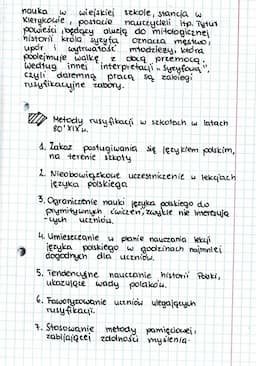 nauka w wiejskiej szkole, stancja w
Klerykowie, postacie nauczycieli itp. Tytuł
powieści będący aluzją do mitologicznej
historii króla Syzyfa oznacza męstwo,
upór i wytrwałość młodzieży, która
podejmuje walkę z obcą przemocą.
Według innej interpretacji - "Syzyfową",
czyli daremną pracą są zabiegi
rusyfikacyjne zaborcy.
Metody rusyfikacji w szkołach w latach
80' XIX w.
1. Zakaz posługiwania się językiem polskim,
na terenie szkoły
2. Nieobowiązkowe uczestniczenie w lekcjach
języka polskiego
3. Ograniczenie nauki języka polskiego do
prymitywnych ćwiczeń, zwykle nie interesują
-cych uczniów.
4. Umieszczanie w planie nauczania lekcji
języka polskiego w godzinach najmniej
dogodnych dla uczniów.
5. Tendencyjne nauczanie historii Polski,
ukazujące wady polaków.
6. Faworyzowanie uczniów ulegających
rusyfikacji.
7. Stosowanie metody pamięciowej,
zabijającej zdolności myślenia.